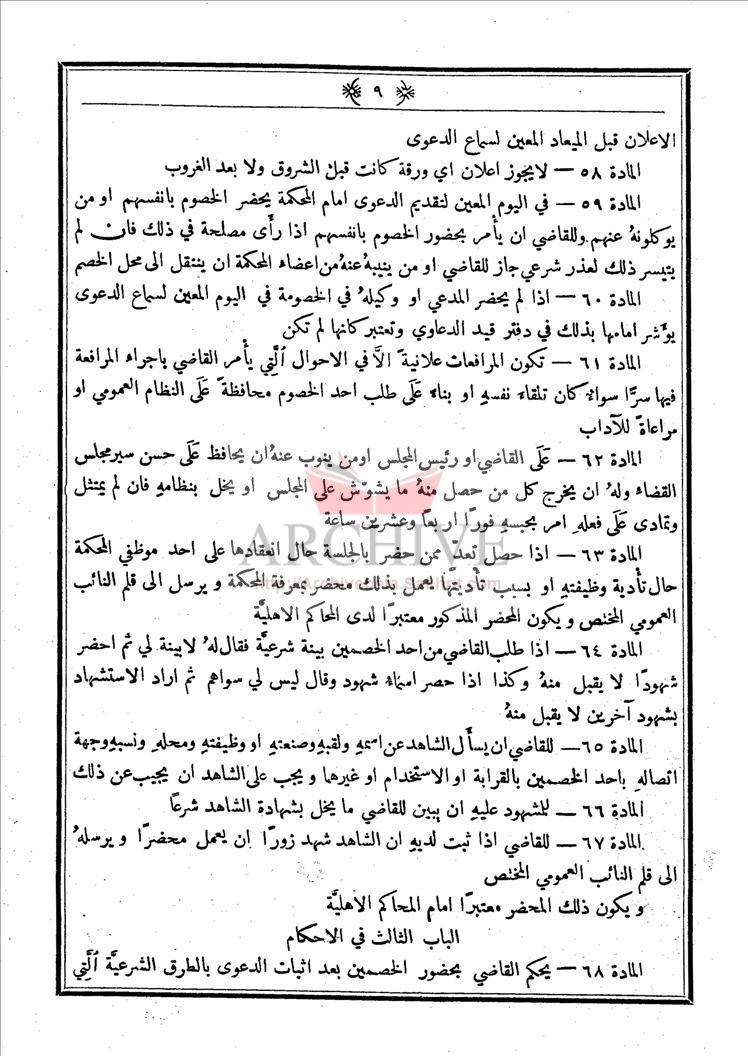 ٩
الاعلان قبل الميعاد المعين لسماع الدعوى
المادة ٥٨ — لايجوز اعلان اي ورقة كانت قبل الشروق ولا بعد الغروب
المادة ٥٩ — في اليوم المعين لتقديم الدعوى امام المحكمة يحضر الخصوم بانفسهم او من
يوكلونهُ عنهم وللقاضي ان يأمر بحضور الخصوم بانفسهم اذا رأى مصلحة في ذلك فان لم
يتيسر ذلك لعذر شرعي جاز للقاضي او من ينيبهُ عنهُ من اعضاء المحكمة ان ينتقل الى محل الخصم
المادة ٦٠ — اذا لم يحضر المدعي او وكيلهُ في الخصومة في اليوم المعين لسماع الدعوى
يؤشر امامها بذلك في دفتر قيد الدعاوي وتعتبر كانها لم تكن
المادة ٦١ — تكون المرافعات علانيةً الاَّ في الاحوال الَّتي يأمر القاضي باجراء المرافعة
فيها سرًّا سوالا كان تلقاء نفسهِ او بناءً عَلَى طلب احد الخصوم محافظةً عَلَى النظام العمومي او
مراعاةً للآداب
المادة ٦٢ — عَلَى القاضي او رئيس المجلس اومن ينوب عنهُ ان يحافظ عَلَى حسن سير مجلس
القضاء ولهُ ان يخرج كل من حصل منهُ ما يشوّش على المجلس او يخل بنظامهِ فان لم يمتثل
وتمادى عَلَى فعلهِ امر بحبسهِ فورًا اربعًا وعشرين ساعة
ARCHIVE
المادة ٦٣ — اذا حصل تعدٍّ ممن حضر بالجلسة حال انعقادها على احد موظفي المحكمة
حال تأدية وظيفتهِ او بسبب تأديتها يعمل بذلك محضر بمعرفة المحكمة و يرسل الى قلم النائب
العمومي المختص و يكون المحضر المذكور معتبرًا لدى المحاكم الاهليَّة
المادة ٦٤ — اذا طلب القاضي من احد الخصمين بينة شرعيَّة فقال لهُ لابينة لي ثم احضر
شهودًا لا يقبل منهُ وكذا اذا حصر اسماء شهود وقال ليس لي سواهم ثم اراد الاستشهاد
بشهود آخرين لا يقبل منهُ
المادة ٦٥ — للقاضي ان يسأل الشاهد عن اسمهِ ولقبهِ وصنعتهِ او وظيفتهِ ومحلهِ ونسبهِ وجهة
اتصالهِ باحد الخصمين بالقرابة او الاستخدام او غيرها و يجب على الشاهد ان يجيب عن ذلك
المادة ٦٦ — للمشهود عليهِ ان يبين للقاضي ما يخل بشهادة الشاهد شرعًا
المادة ٦٧ — للقاضي اذا ثبت لديهِ ان الشاهد شهد زورًا ان يعمل محضرًا و يرسلهُ
الى قلم النائب العمومي المختص
و يكون ذلك المحضر معتبرًا امام المحاكم الاهليَّة
الباب الثالث في الاحكام
المادة ٦٨ — يحكم القاضي بحضور الخصمين بعد اثبات الدعوى بالطرق الشرعيَّة الَّتي